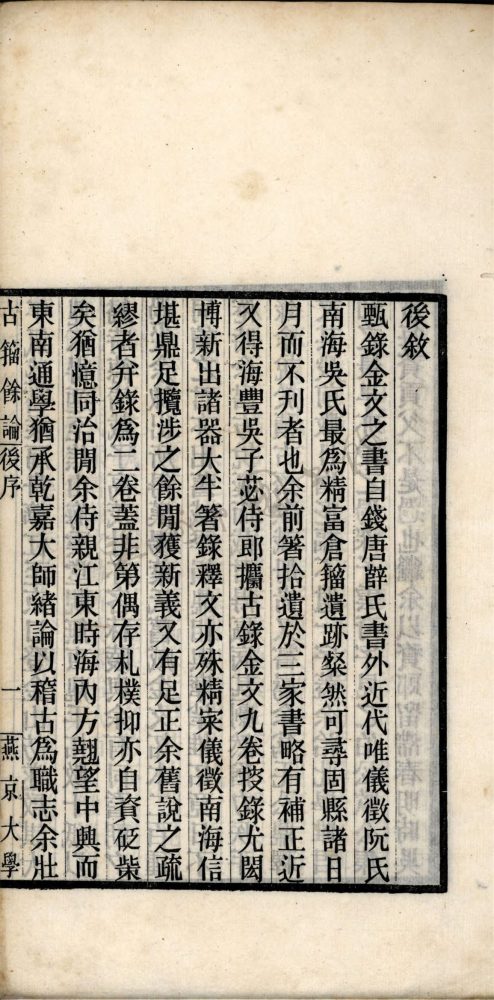 後敘
甄錄金文之書自錢唐薛氏書外近代唯儀徵阮氏
南海吳氏最爲精富倉籀遺跡粲然可尋固縣諸日
月而不刊者也余前箸拾遺於三家書略有補正近
又得海豐吳子苾侍郎攟古錄金文九卷捘錄尤閎
博新出諸器大半箸錄釋文亦殊精寀儀徵南海信
堪鼎足攬涉之餘閒獲新義又有足正余舊說之疏
繆者幷錄爲二卷蓋非第偶存札樸抑亦自資砭㭰
矣猶憶同治閒余侍親江東時海內方翹望中興而
東南通學猶承乾嘉大師緒論以稽古爲職志余壯
古籀餘論後序
一
燕京大學